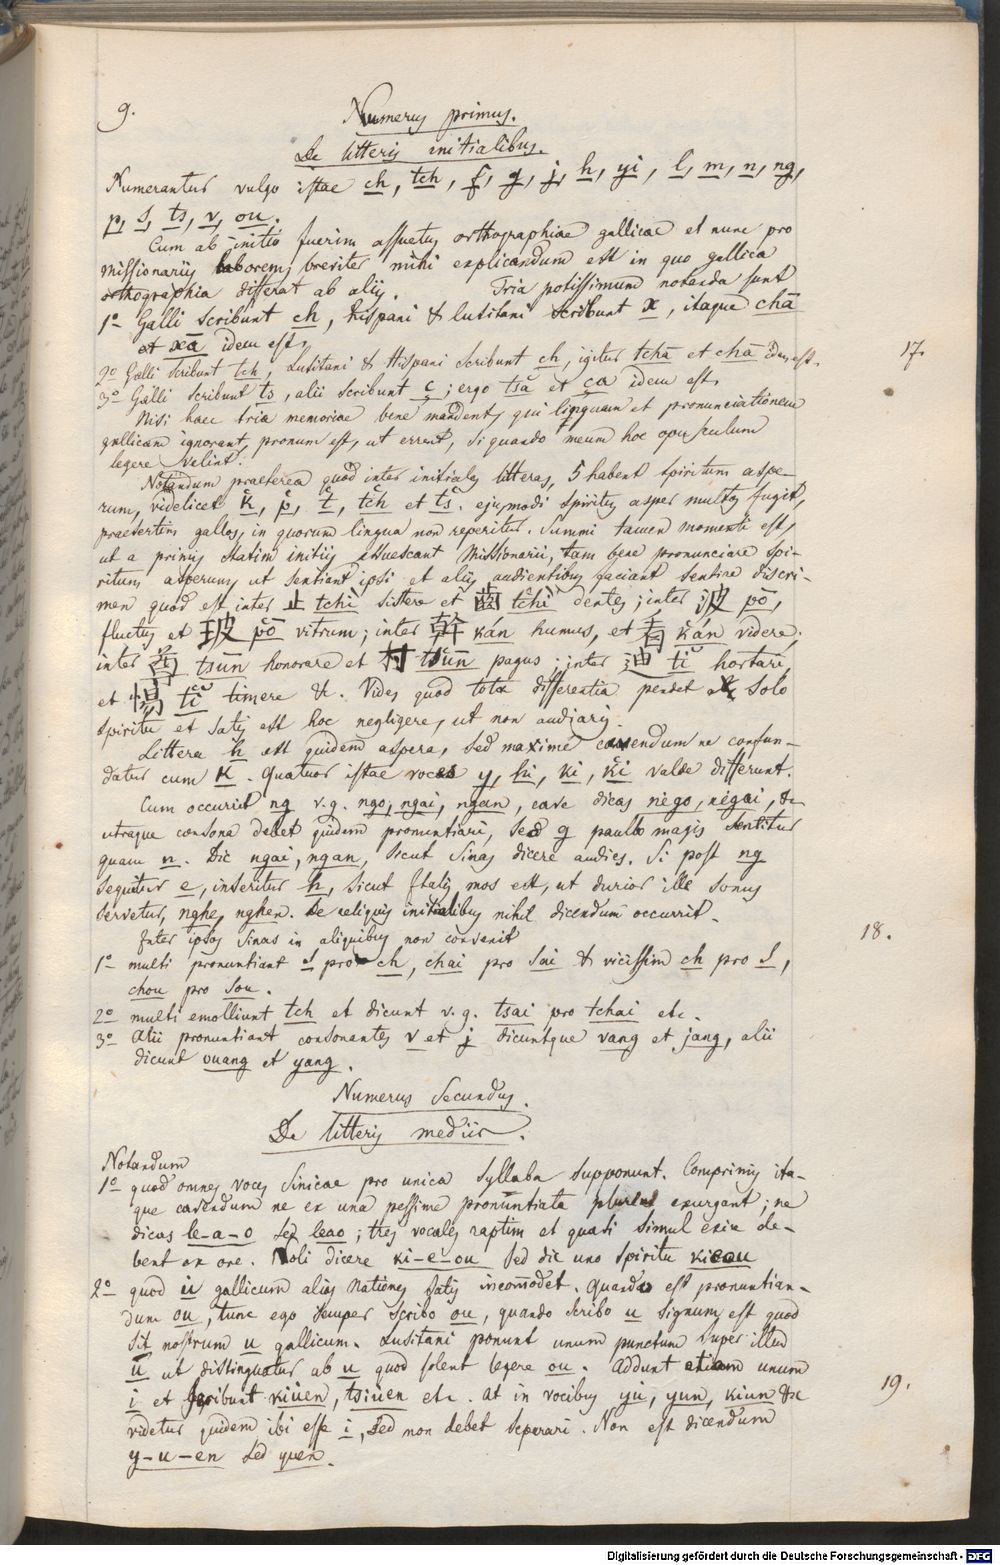 9.
Numerus primus.
De litteris initialibus.
Numerantur vulgo istae ch, tch, f, g, j, h, yi, l, m, n, ng,
p, s, ts, v, ou.
Cum ab initio fuerim assuetus orthographiae gallicae et nunc pro
missionariis laborem, breviter mihi explicandum est in quo gallica
orthographia differat ab aliis. Tria potissimum notanda sunt
1º Galli scribunt ch, Hispani & lusitani scribunt x, itaque chā
et xā idem est.
2º Galli scribunt tch, Lusitani & Hispani scribunt ch, igitur tchā et chā idem est.
17.
3º Galli scribunt ts, alii scribunt ç; ergo tsā et ça idem est.
Nisi haec tria memoriae bene mandent, qui linguam et pronunciationem
gallicam ignorant, pronum est, ut errent, si quando meum hoc opusculum
legere velint.
Notandum praeterea quod inter initiales litteras, 5 habent spiritum aspe-
rum, videlicet k̔, p̔, t̔, tc̔h et ts̔. ejusmodi spiritus asper multos fugit,
praesertim gallos, in quorum lingua non reperitur. Summi tamen momenti est,
ut a primis statim initiis assuescant Missionarii, tum bene pronunciare spi-
ritum asperum, ut sentiant ipsi et aliis audientibus faciant sentire discri-
men quod est inter 止 tchì sistere et 齒 tc̔hì dentes; inter 波 pō,
fluctus et 玻 p̔ō vitrum; inter 幹 kán humus, et 看 k̔án videre;
inter 尊 tsūn honorare et 村 ts̔ūn pagus; inter 迪 tĭ hortari,
et 惕 t̔ĭ timere &c. Vides quod tota differentia pendet a solo
spiritu et satis est hoc negligere, ut non audiaris.
Littera h est quidem aspera, sed maximé cavendum ne confun-
datur cum K. Quatuor istae voces y, hi, ki, k̔i valde differunt.
Cum occurrit ng v.g. ngo, ngai, ngan, cave dicas nego, négai, &c
utraque consona debet quidem pronuntiari, sed g paullo magis sentitur
quam n. Dic ngai, ngan, sicut Sinas dicere audies. Si post ng
sequitur e, inseritur h, sicut Italis mos est, ut durior ille sonus
servetur, nghe, nghen. De reliquis initialibus nihil dicendum occurrit.
18.
Inter ipsos Sinas in aliquibus non convenit
1º multi pronuntiant s pro ch, chai pro sai & vicissim ch pro s,
chou pro sou.
2º multi emolliunt tch et dicunt v.g. tsai pro tchai etc.
3º Alii pronuntiant consonantes v et j dicuntque vang et jang, alii
dicunt ouang et yang.
Numerus Secundus.
De litteris mediis.
Notandum
1º quod omnes voces Sinicae pro unica syllaba supponunt. Comprimis ita-
que cavendum ne ex una pessime pronuntiata plures exurgant; ne
dicas le-a-o sed leao; tres vocales raptim et quasi simul exire de-
bent ex ore. Noli dicere ki-e-ou sed dic uno spiritu kieou
2º quod ü gallicum alias nationes satis incom̄odet. Quando est pronuntian-
dum ou, tunc ego semper scribo ou, quando scribo u signum est quod
sit nostrum u gallicum. Lusitani ponunt unum punctum super illud
u̇ ut distinguatur ab u quod solent legere ou. Addunt etiam unum
i et scribunt kiuen, tsiuen etc. At in vocibus yu, yun, kiun &c
19.
videtur quidem ibi esse i, sed non debet separari. Non est dicendum
y-u-en sed yuen.
Digitalisierung gefördert durch die Deutsche Forschungsgemeinschaft - DFG